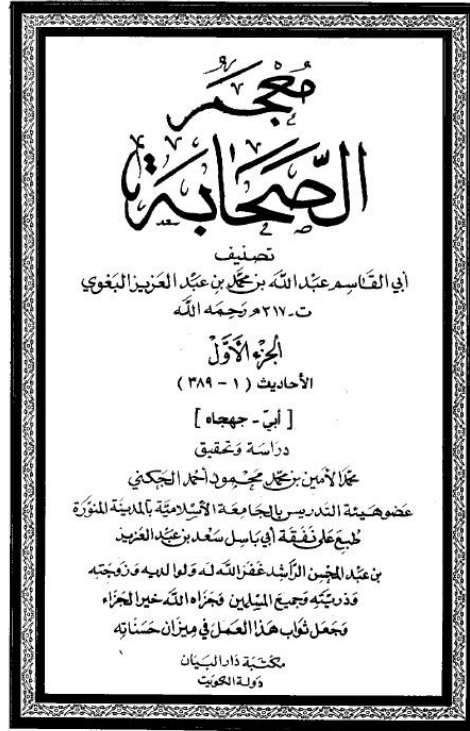 معجم
الصحابة
تصنيف
أبي القاسم عبد الله بن محمد بن عبد العزيز البغوي
ت ـ ٣١٧ هـ رحمه الله
الجزء الأول
الأحاديث ( ١ - ٣٨٩ )
[ أبيّ - جهجاه ]
دراسة وتحقيق
محمد الأمين بن محمد محمود أحمد الجكني
عضو هيئة التدريس بالجامعة الأسلامية بالمدينة المنورة
طبع على نفقة أبي باسل سعد بن عبد العزيز
بن عبد المحسن الراشد غفر الله له ولوالديه وزوجته
وذريته وجميع المسلمين وجزاه الله خير الجزاء
وجعل ثواب هذا العمل في ميزان حسناته
مكتبة دار البيان
دولة الكويت